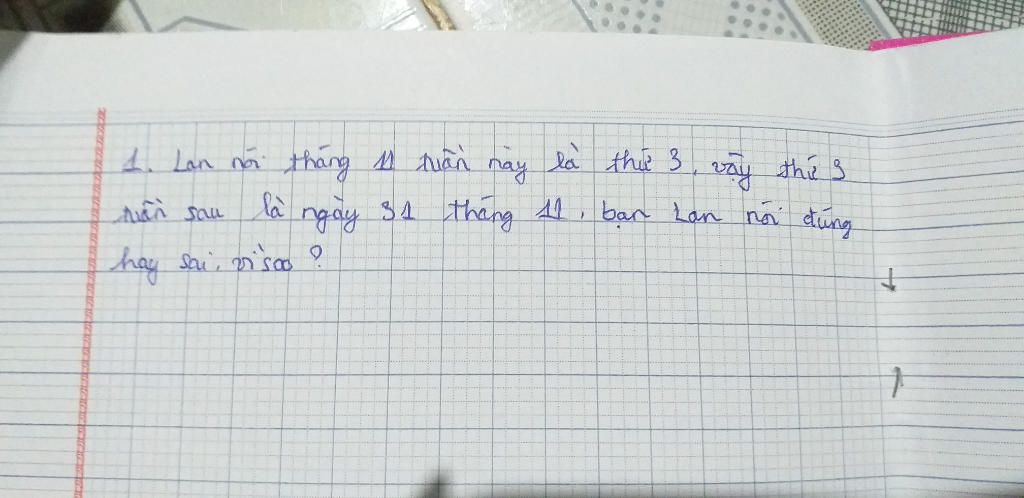 1. Lan nói tháng 11 tuần này là thứ 3, vậy thứ 3
tuần sau là ngày 31 tháng 11, bạn Lan nói đúng
hay sai, vì sao ?